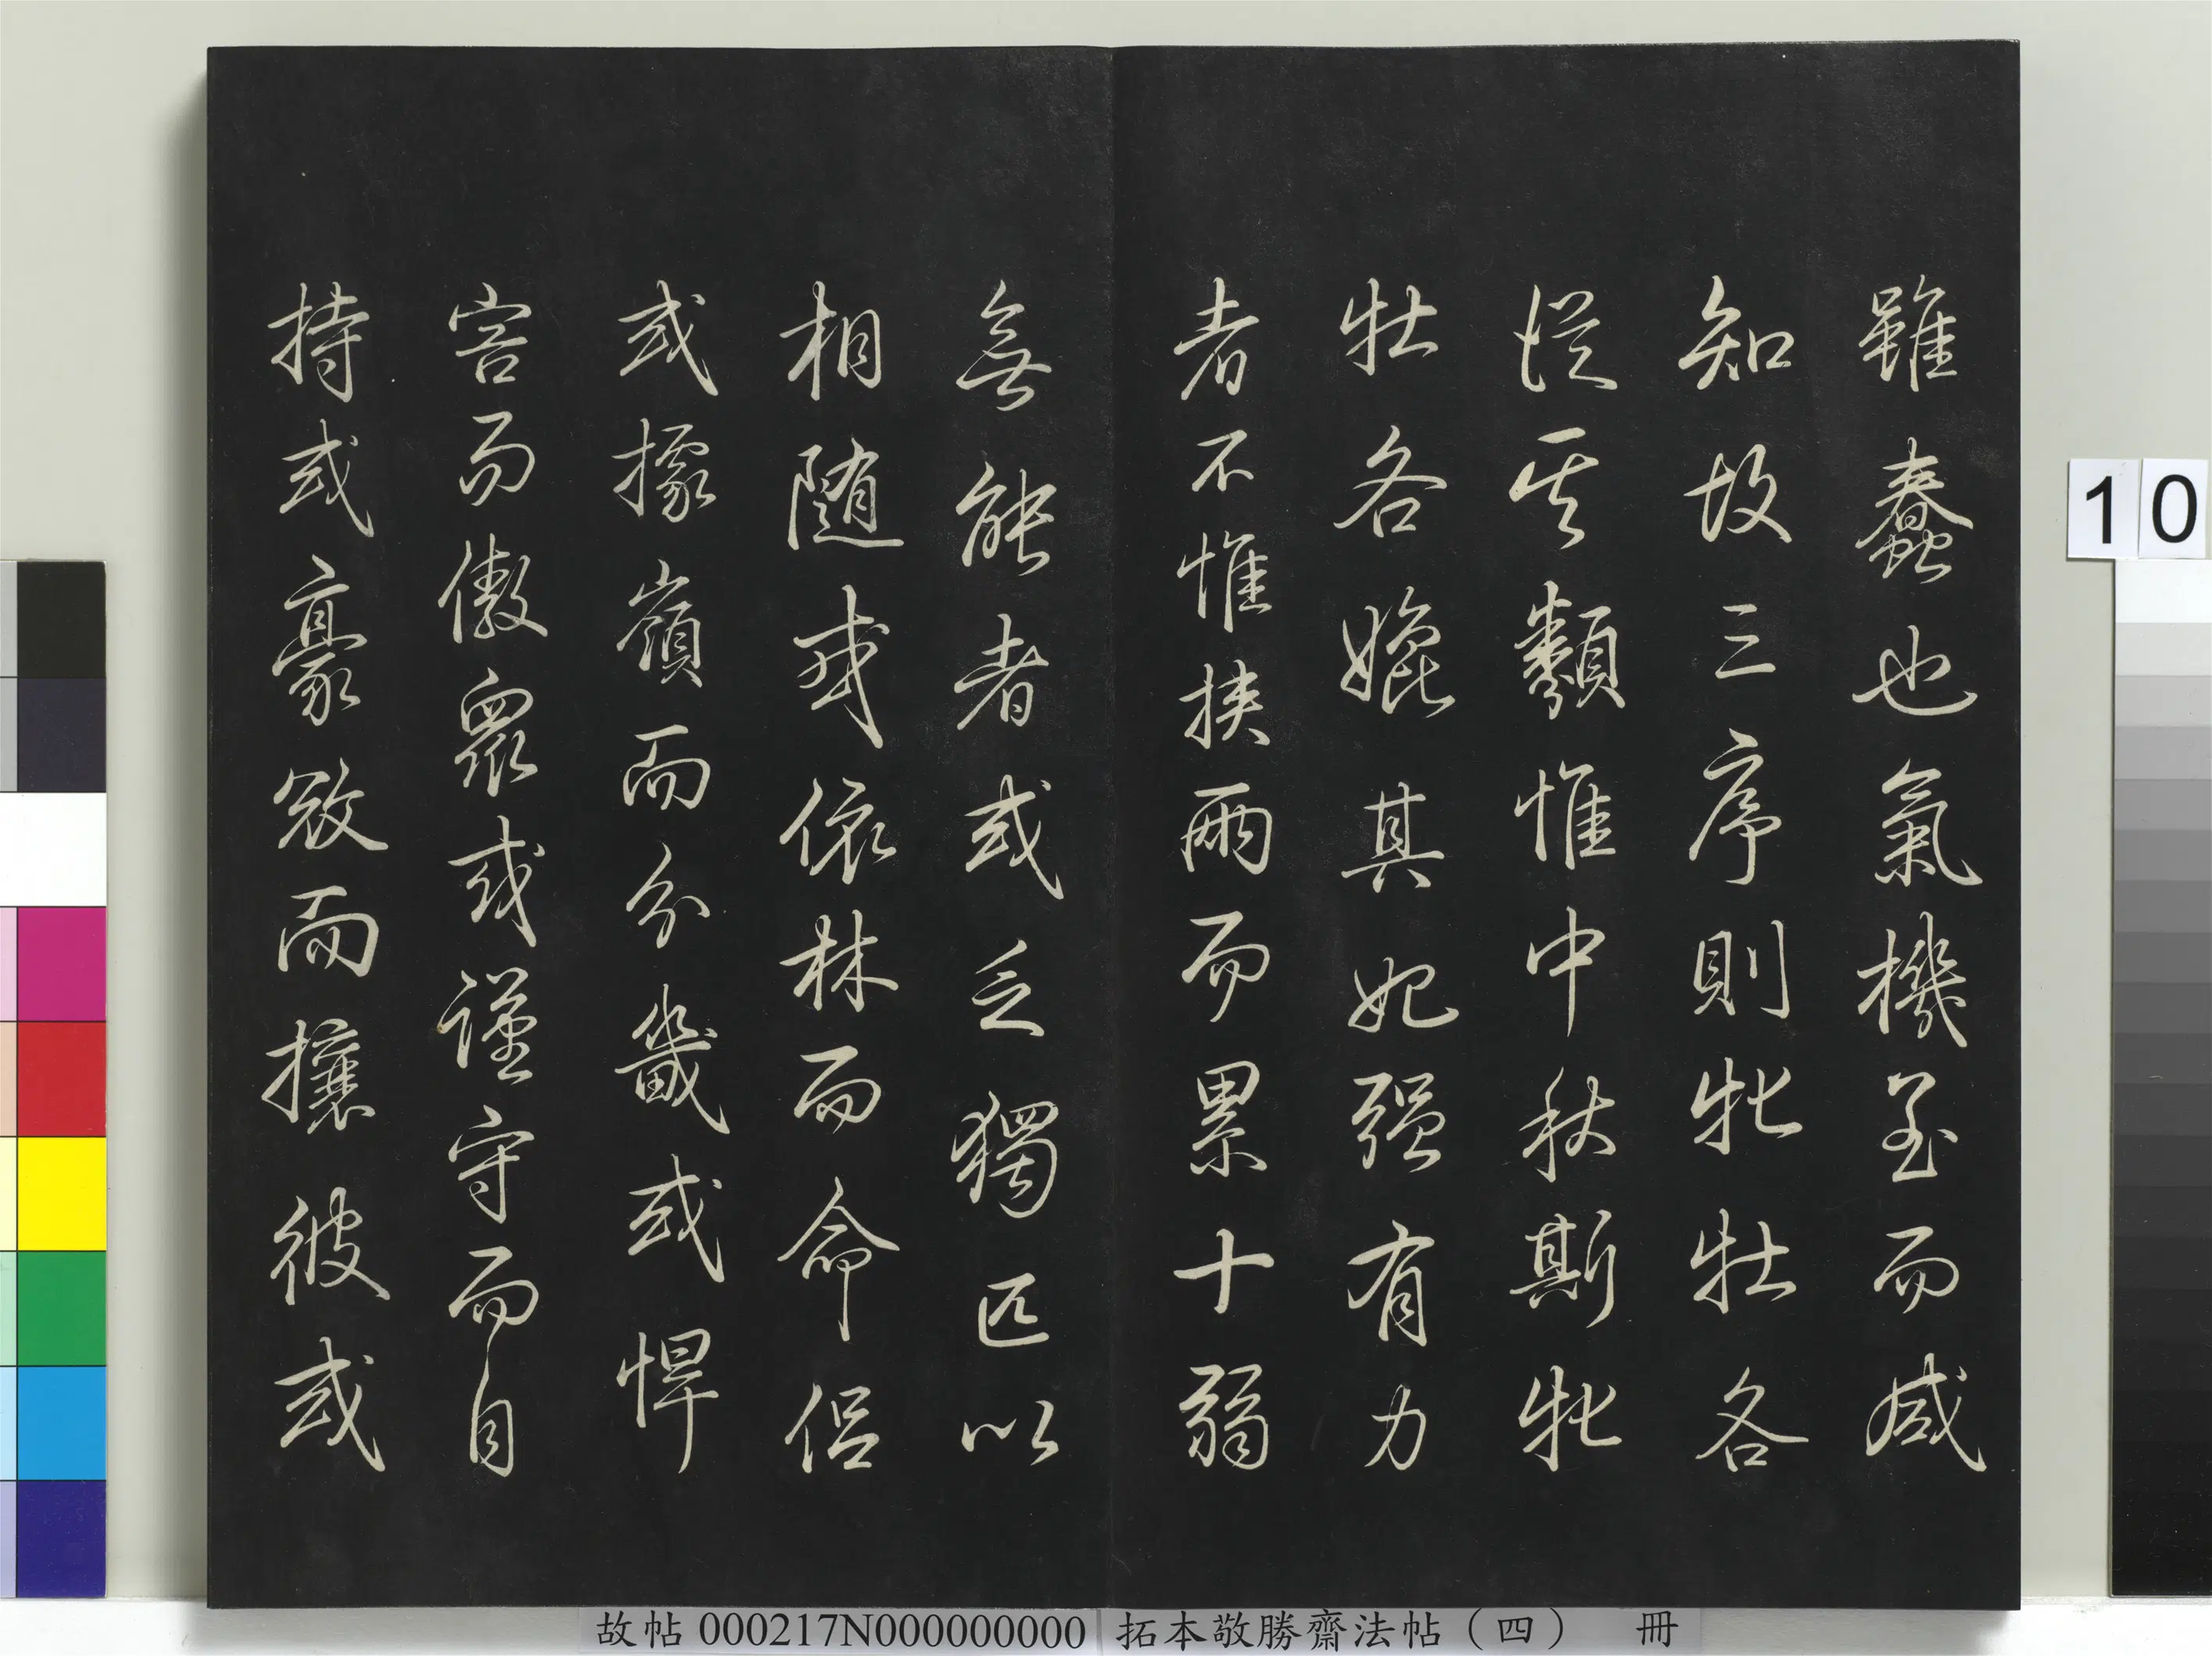 雖蠢也氣機至而感
知故三序則牝牡各
從其類惟中秋斯牝
牡各媲其妃强有力
者不惟挾兩而累十弱
無能者或乏獨匹以
相隨或依林而命侣
或據嶺而分畿或悍
害而傲衆或謹守而自
持或豪斂而攘彼或
10
故帖000217N000000000 拓本敬勝齋法帖（四） 冊